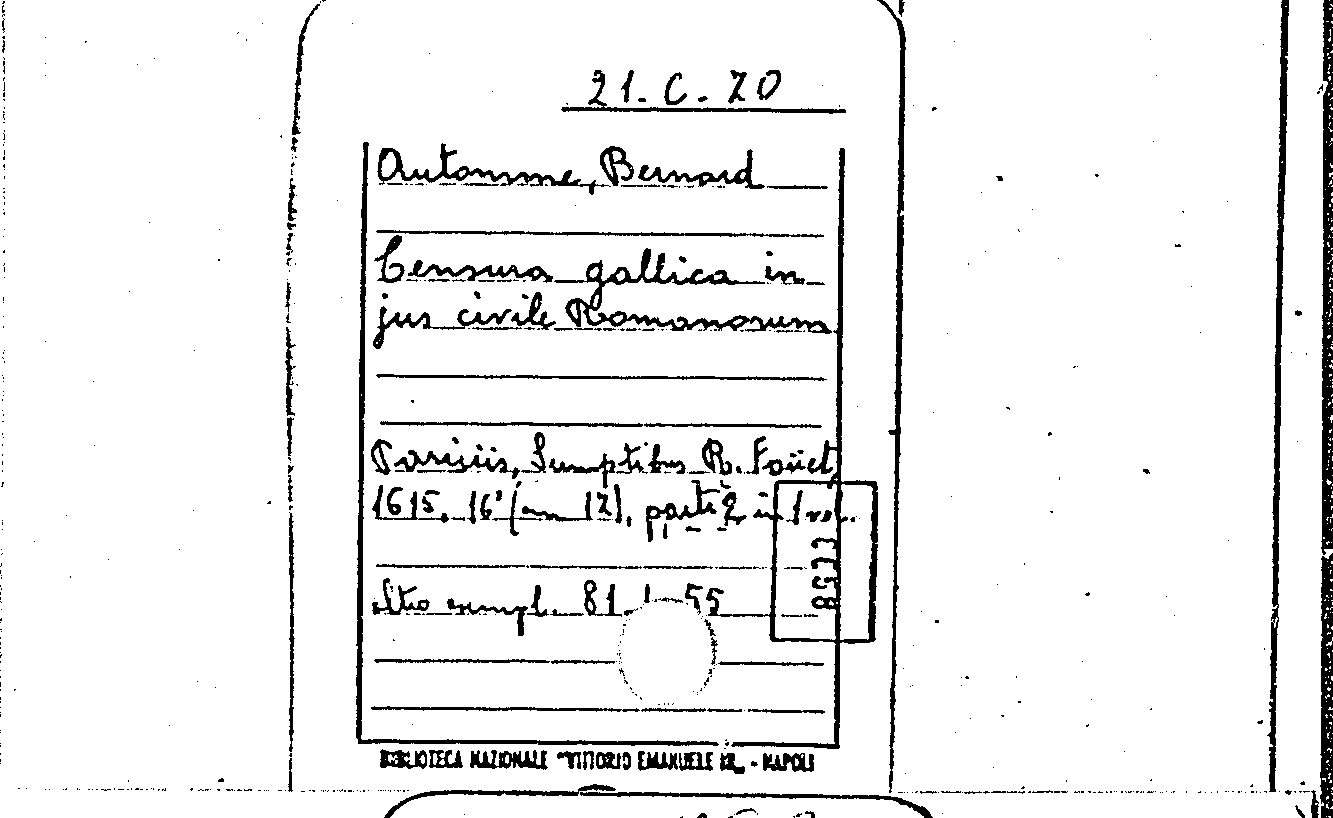 21. C. 70
Autonme, Bernard
Censura gallica in
jus civile Romanorum
Parisiis, Sumptibus R. Foüet,
1615. 16° (cm 17), parti 2 in 1 vol.
altro exempl. 81 55
BIBLIOTECA NAZIONALE "VITTORIO EMANUELE III„ - NAPOLI